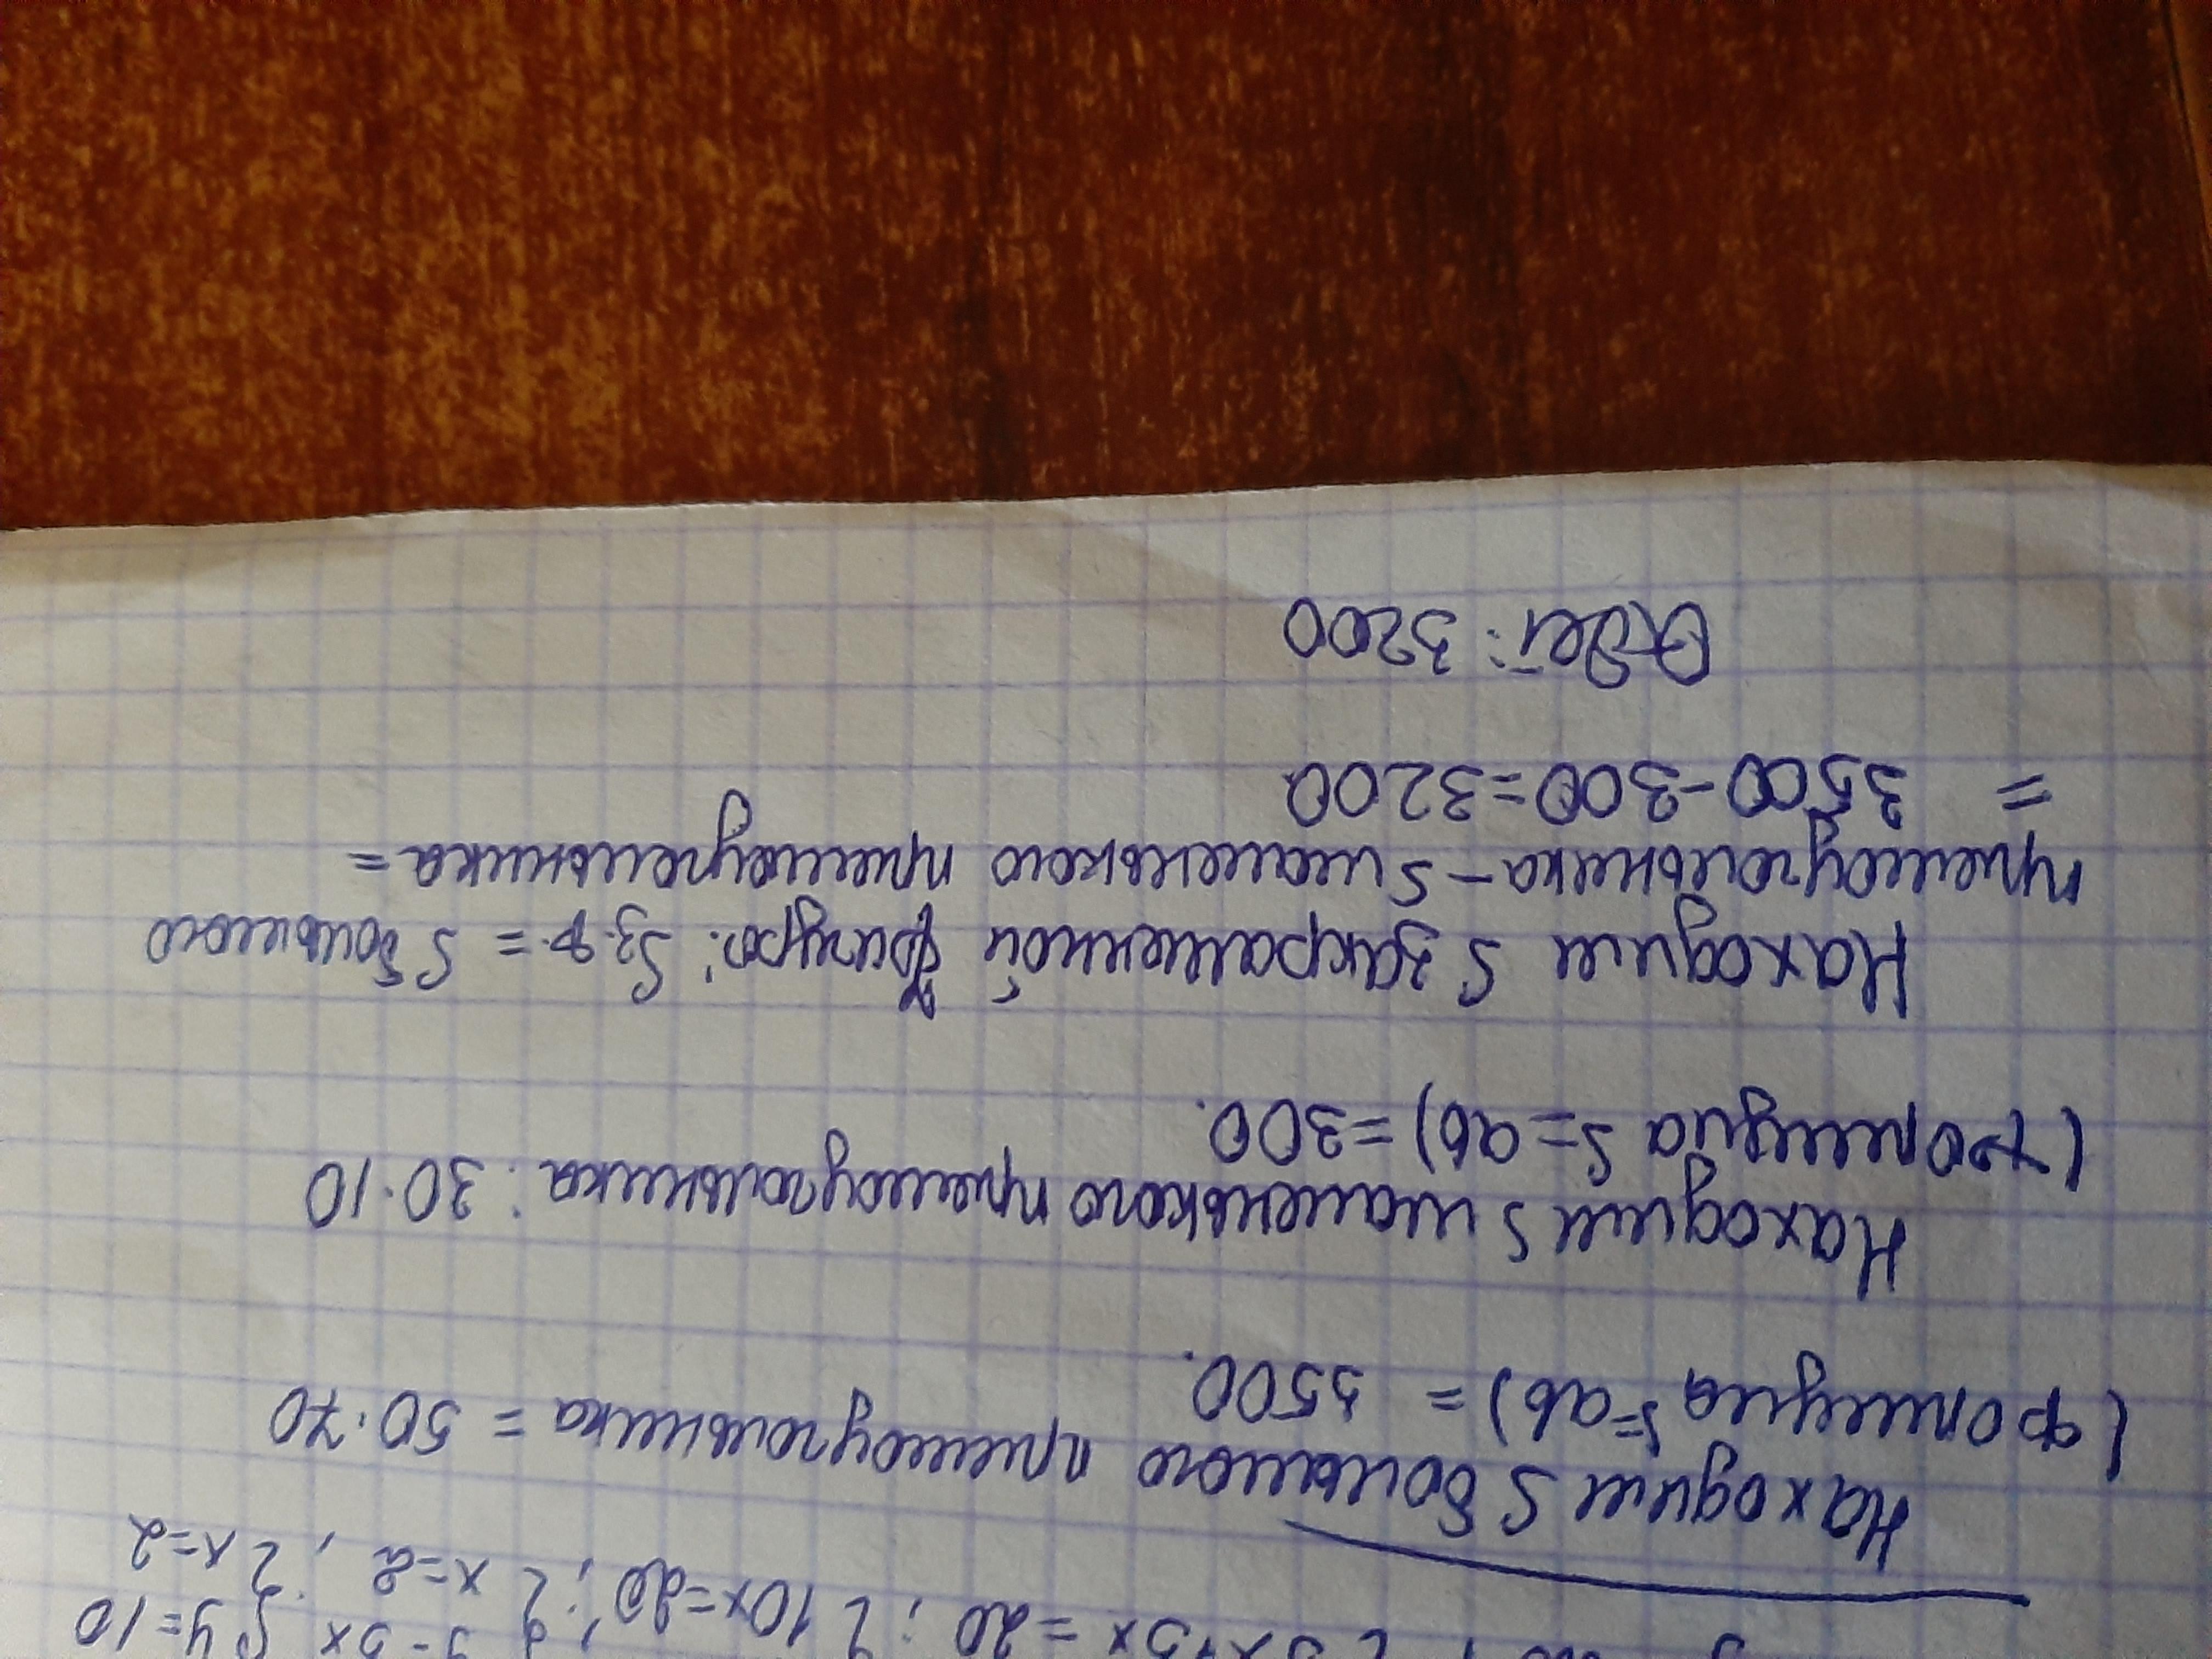 5x+5x=20; { 10x=20; { x=2 ; { x=2
y=5x { y=10
Находим S большого прямоугольника = 50·70
(формула S=ab) = 3500.
Находим S маленького прямоугольника: 30·10
(формула S=ab)=300.
Находим S закрашенной фигуры: Sз.ф.= S большого
прямоугольника - S маленького прямоугольника=
= 3500-300=3200
Ответ: 3200